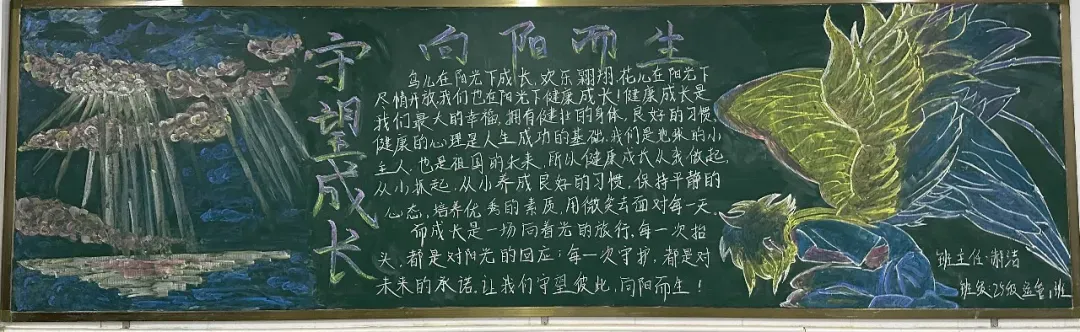 守望成长
向阳而生
鸟儿在阳光下成长,欢乐翱翔,花儿在阳光下
尽情开放,我们也在阳光下健康成长!健康成长是
我们最大的幸福,拥有健壮的身体,良好的习惯,
健康的心理是人生成功的基础,我们是地球的小
主人,也是祖国的未来,所以健康成长从我做起,
从小抓起,从小养成良好的习惯,保持平静的
心态,培养优秀的素质,用微笑去面对每一天,
而成长是一场向着光的旅行,每一次抬
头,都是对阳光的回应;每一次守护,都是对
未来的承诺,让我们守望彼此,向阳而生!
班主任:谢洁
班级:25级 1班